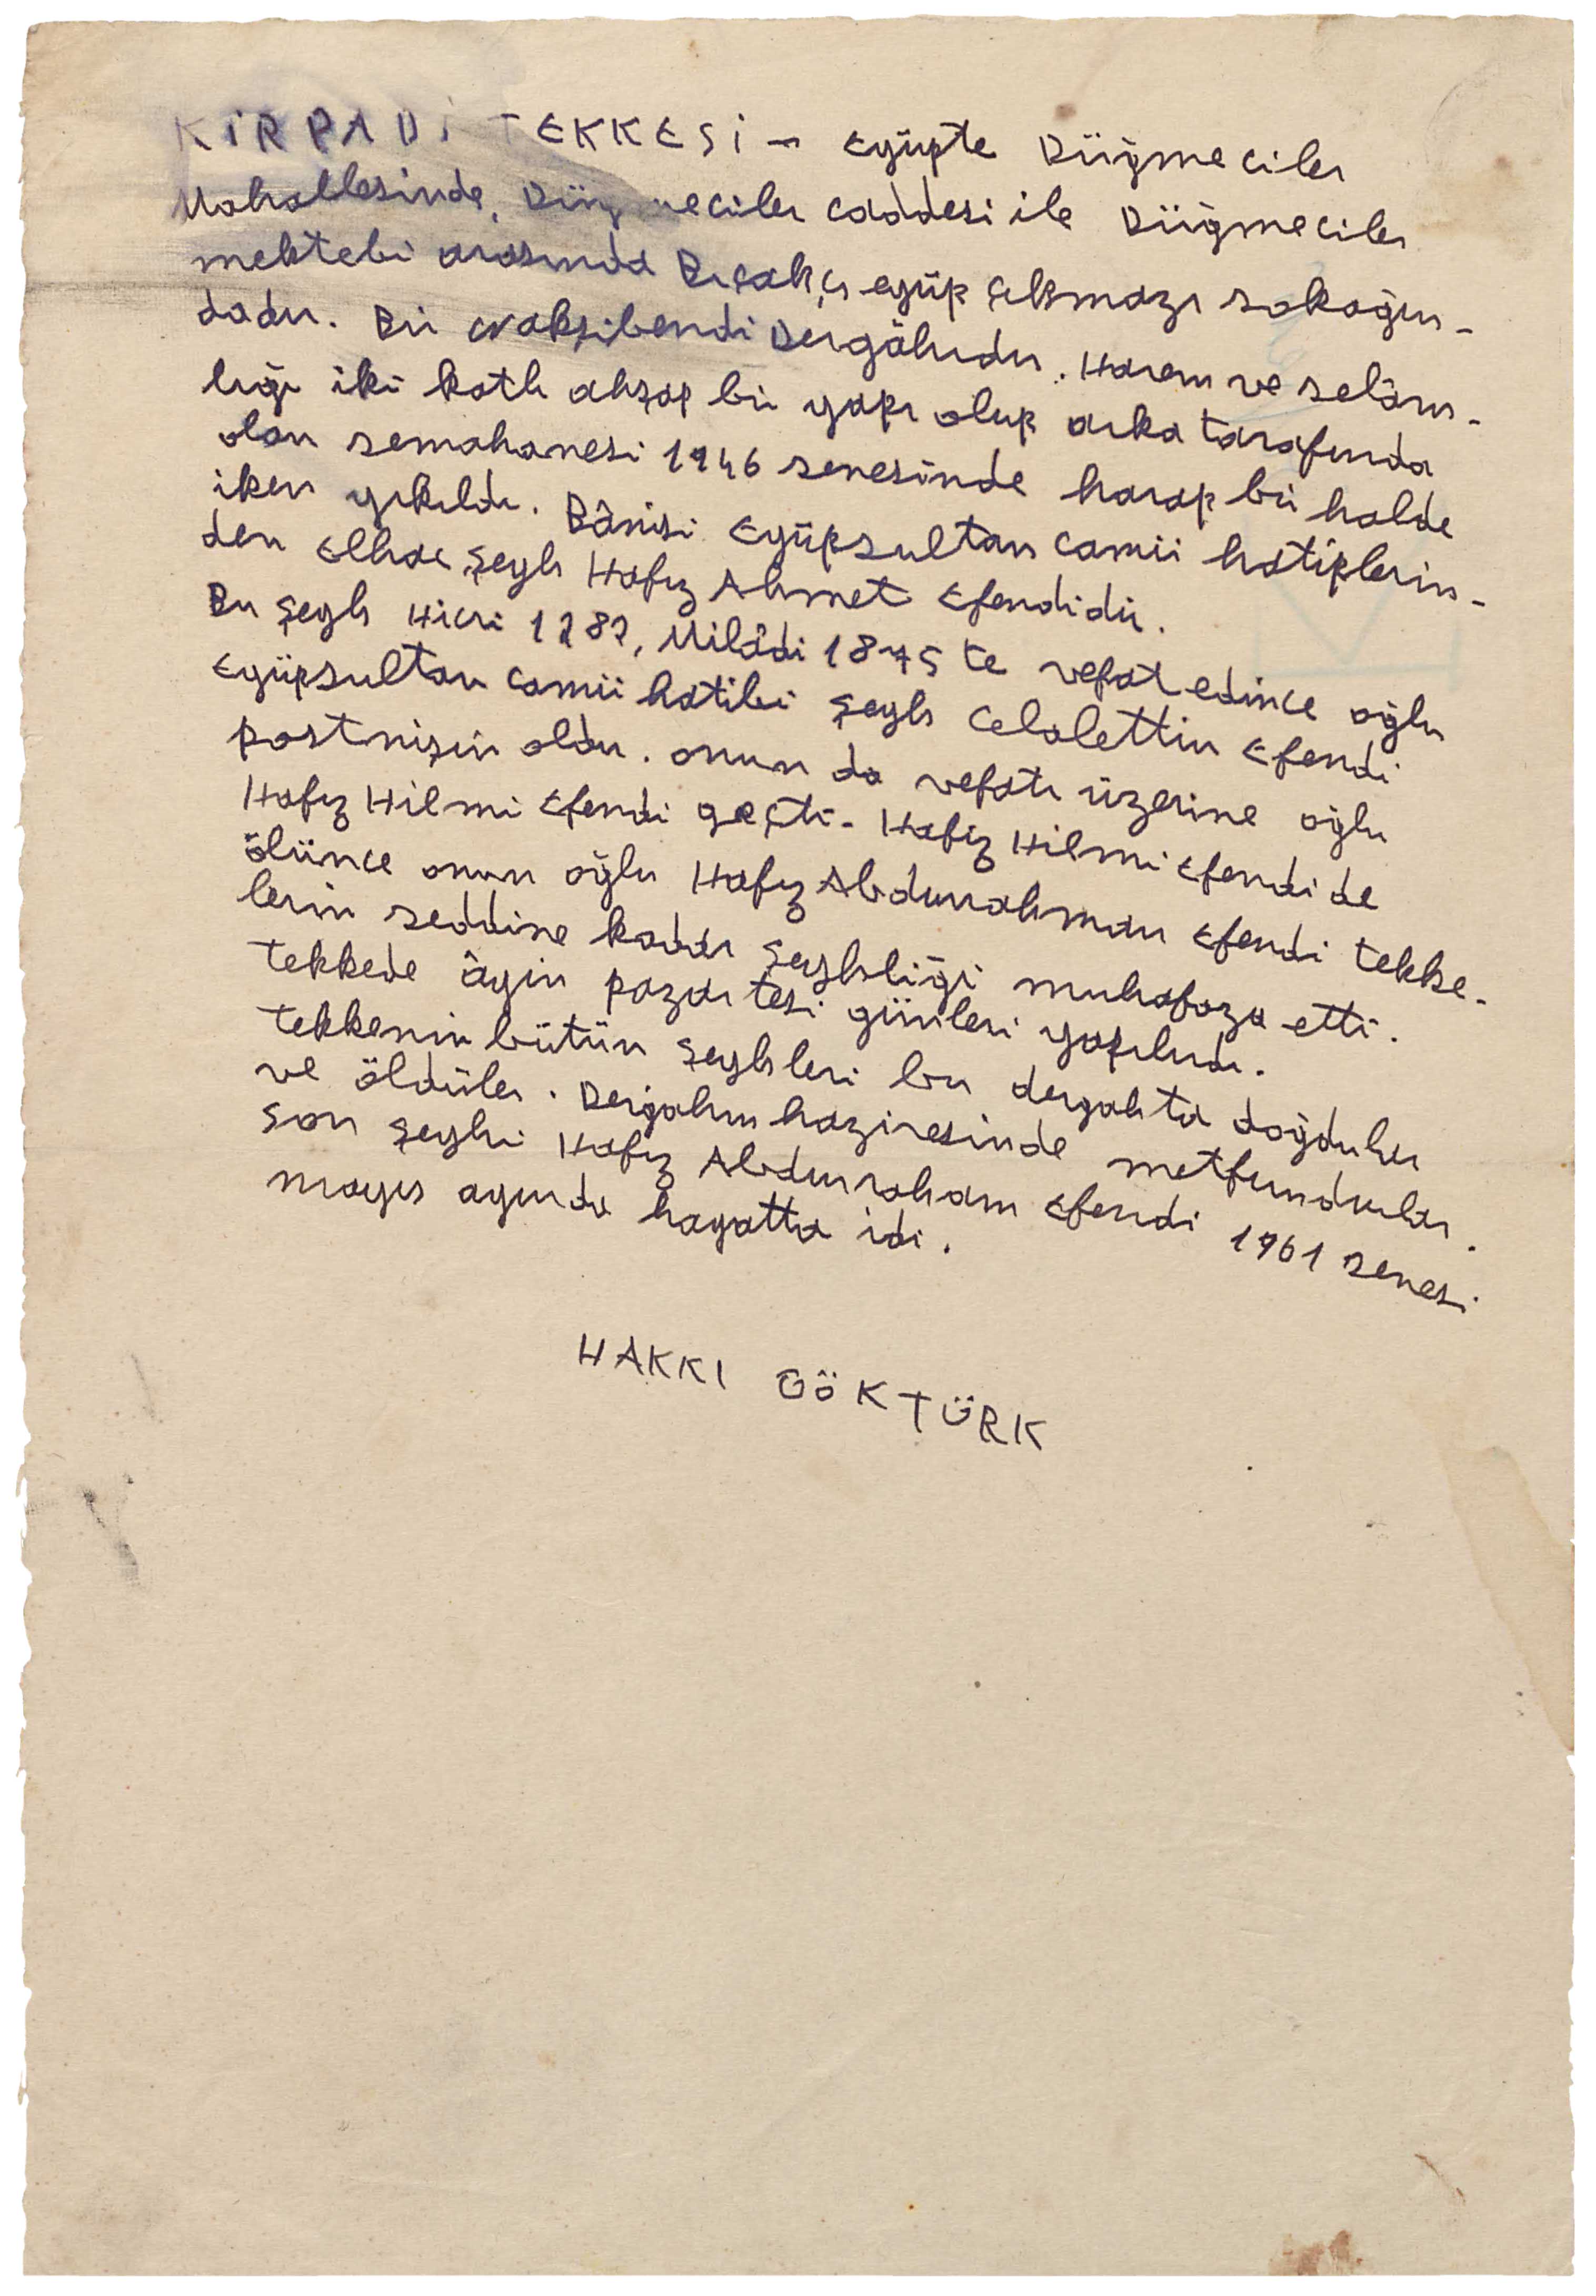 KİRPADİ TEKKESİ - Eyüpte Düğmeciler
Mahallesinde, Düğmeciler caddesi ile Düğmeciler
mektebi arasında Bıçakçı eyüp çıkmazı sokağın-
dadır. Bir Nakşibendi Dergâhıdır. Harem ve selâm-
lığı iki katlı ahşap bir yapı olup arka tarafında
olan semahanesi 1946 senesinde harap bir halde
iken yıkıldı. Bânisi Eyüpsultan camii hatiplerin-
den Elhac Şeyh Hafız Ahmet Efendidir.
Bu şeyh Hicri 1282, Milâdi 1875 te vefat edince oğlu
Eyüpsultan camii hatibi Şeyh Celalettin Efendi
postnişin oldu. onun da vefatı üzerine oğlu
Hafız Hilmi Efendi geçti. Hafız Hilmi Efendi de
ölünce onun oğlu Hafız Abdurrahman Efendi tekke-
lerin seddine kadar şeyhliği muhafaza etti.
Tekkede âyin pazartesi günleri yapılırdı.
Tekkenin bütün şeyhleri bu dergahta doğdular
ve öldüler. Dergahın haziresinde metfundurlar.
Son şeyhi Hafız Abdurraham Efendi 1961 senesi
mayıs ayında hayatta idi.
HAKKI GÖKTÜRK